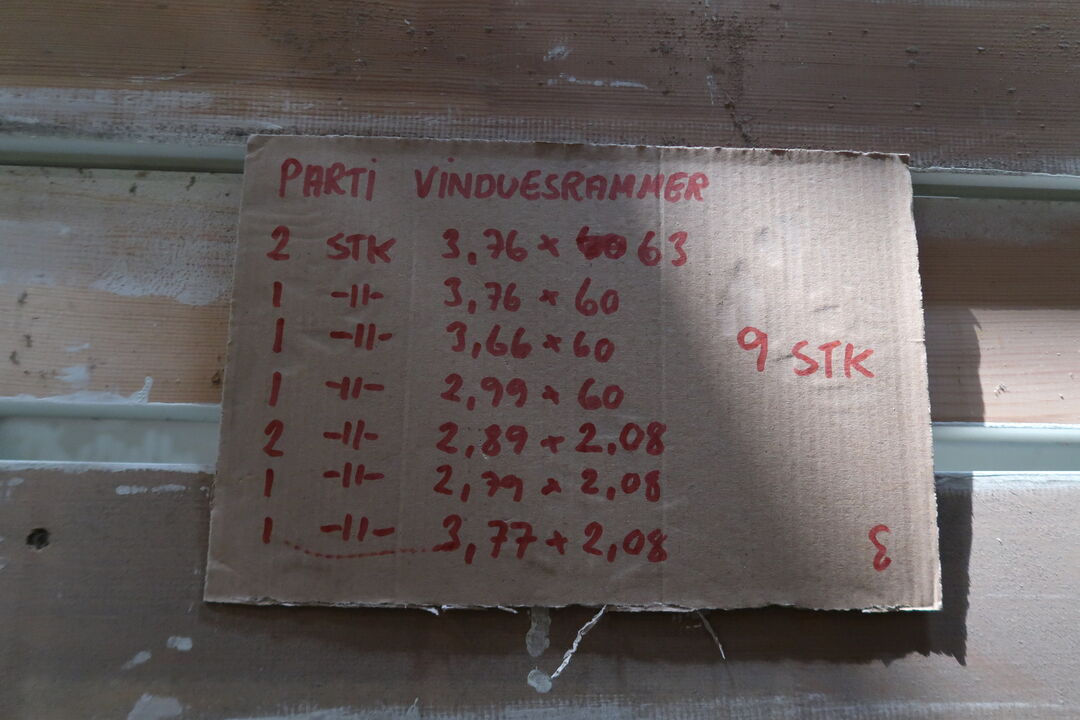 PARTI VINDUESRAMMER
2 STK 3,76 x 63
1 -||- 3,76 x 60
1 -||- 3,66 x 60
1 -||- 2,99 x 60
9 STK
2 -||- 2,89 x 2,08
1 -||- 2,79 x 2,08
1 -||- 3,77 x 2,08